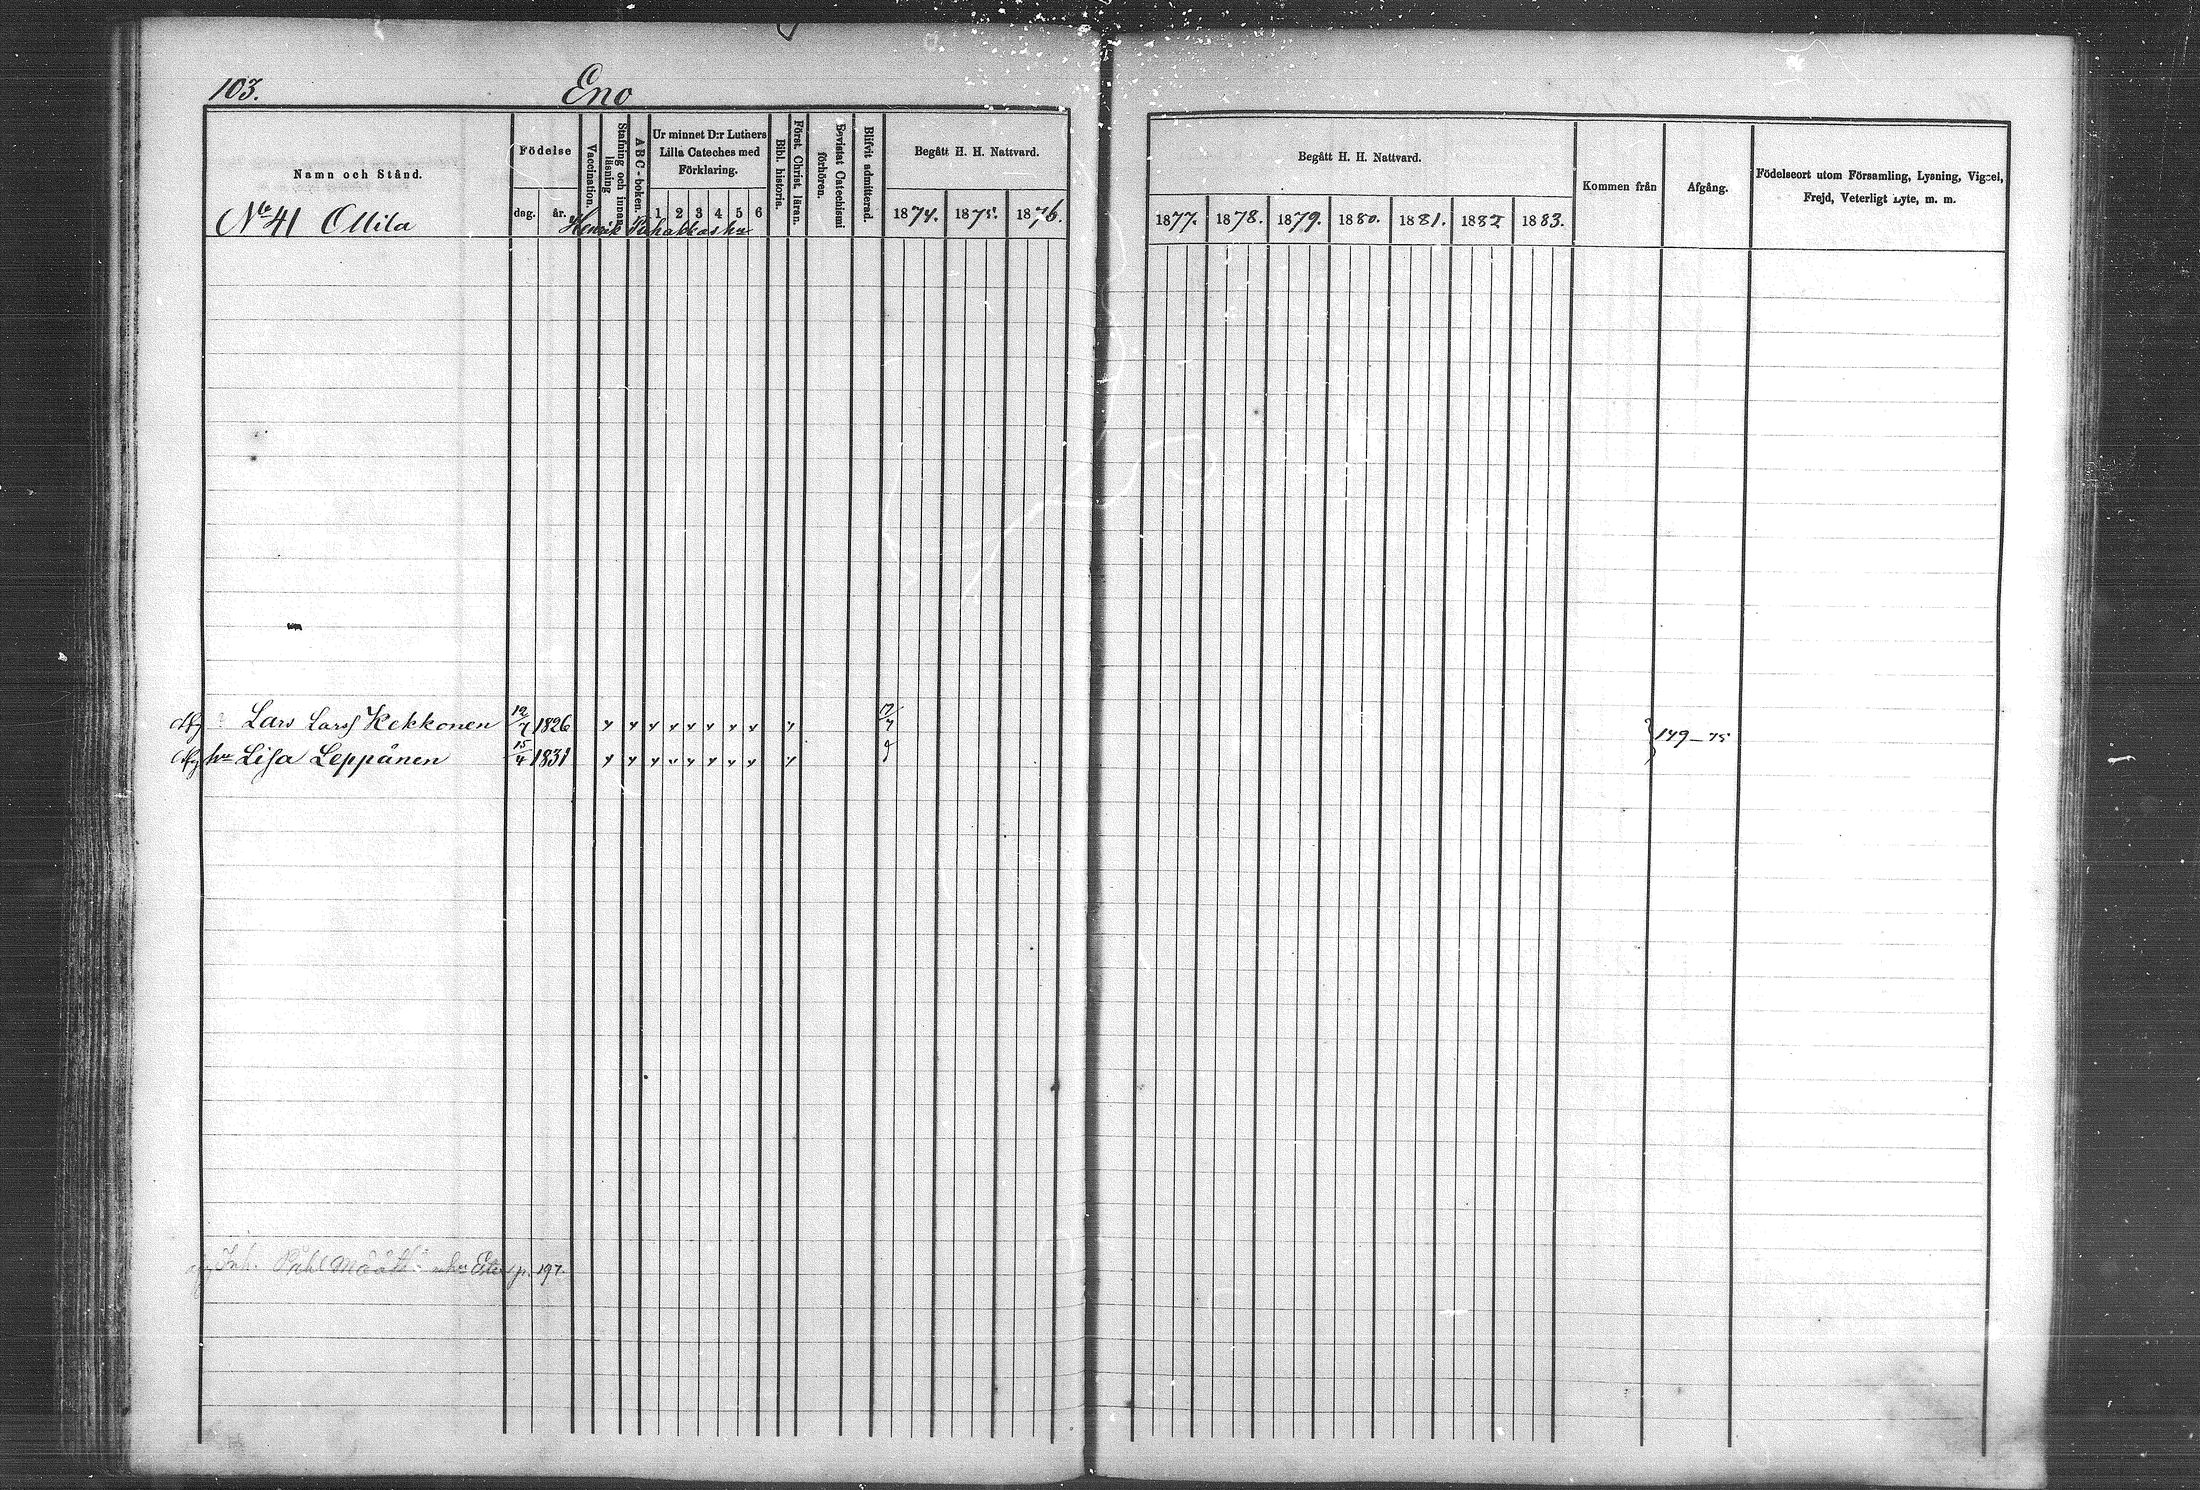 103.
Eno
Namn och Stånd.
Födelse
dag.
år.
Vaccination.
Stafning och innan läsning
ABC-boken.
Ur minnet D:r Luthers Lilla Cateches med Förklaring.
1 2 3 4 5 6
Bibl. historia.
Först. Christ. läran.
Bevistat Catechismi förhören.
Blifvit admitterad.
Begått H. H. Nattvard.
1874. 1875. 1876.
Begått H. H. Nattvard.
1877. 1878. 1879. 1880. 1881. 1882 1883.
Kommen från
Afgång.
Födelseort utom Församling, Lysning, Vigsel,
Frejd, Veterligt Lyte, m. m.
No 41 Ollila Henrik
Lars Larsf Kekkonen 12/7 1826 17/7
hu Lisa Leppänen 15/4 1831
149-75
Inh. p. 197.